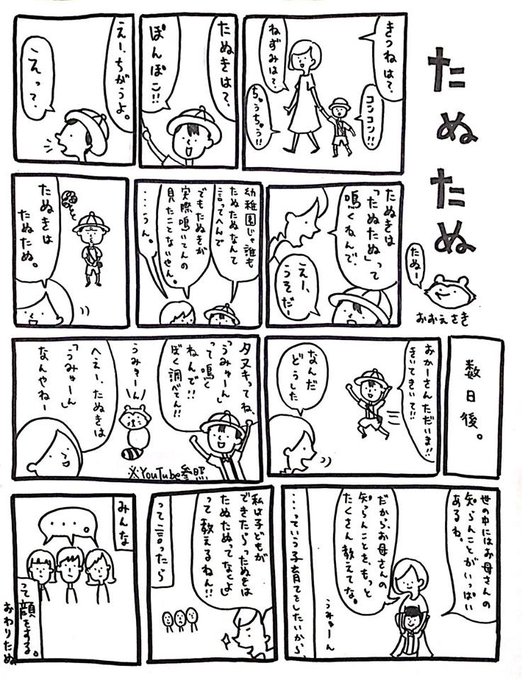 たぬたぬ
たぬー
おおえさき
きつねは？、
コンコン!!
ねずみは？、
ちゅうちゅう!!
たぬきは？、
ぽんぽこ!!
えー、ちがうよ。
えっ？、
たぬきは
「たぬたぬ」って
鳴くねんで、
えー、
うそだー
幼稚園じゃ誰も
たぬたぬなんて
言ってへんで
でもたぬきが
実際鳴いてんの
見たことないやん。
・・・うん。
たぬきは
たぬたぬ。
数日後。
おかーさんただいま!!
きいてきいて!!
なんだ
どうした
タヌキってね、
「うみゅーん」
って鳴く
ねんで!!
ぼく調べてん!!
うみゅーん!
へえー、たぬきは
「うみゅーん」
なんやねー
※YouTube参照
世の中にはお母さんの
知らんことがいっぱい
あるね。
だからお母さんの
知らんことを、もっと
たくさん教えてな。
うみゅーん
・・・っていう子育てをしたいから、
私は子どもが
できたら「たぬきは
たぬたぬってなくよ」
って教えるねん!!
って言ったら
みんな
・・・。
って顔をする。
おわりたぬ